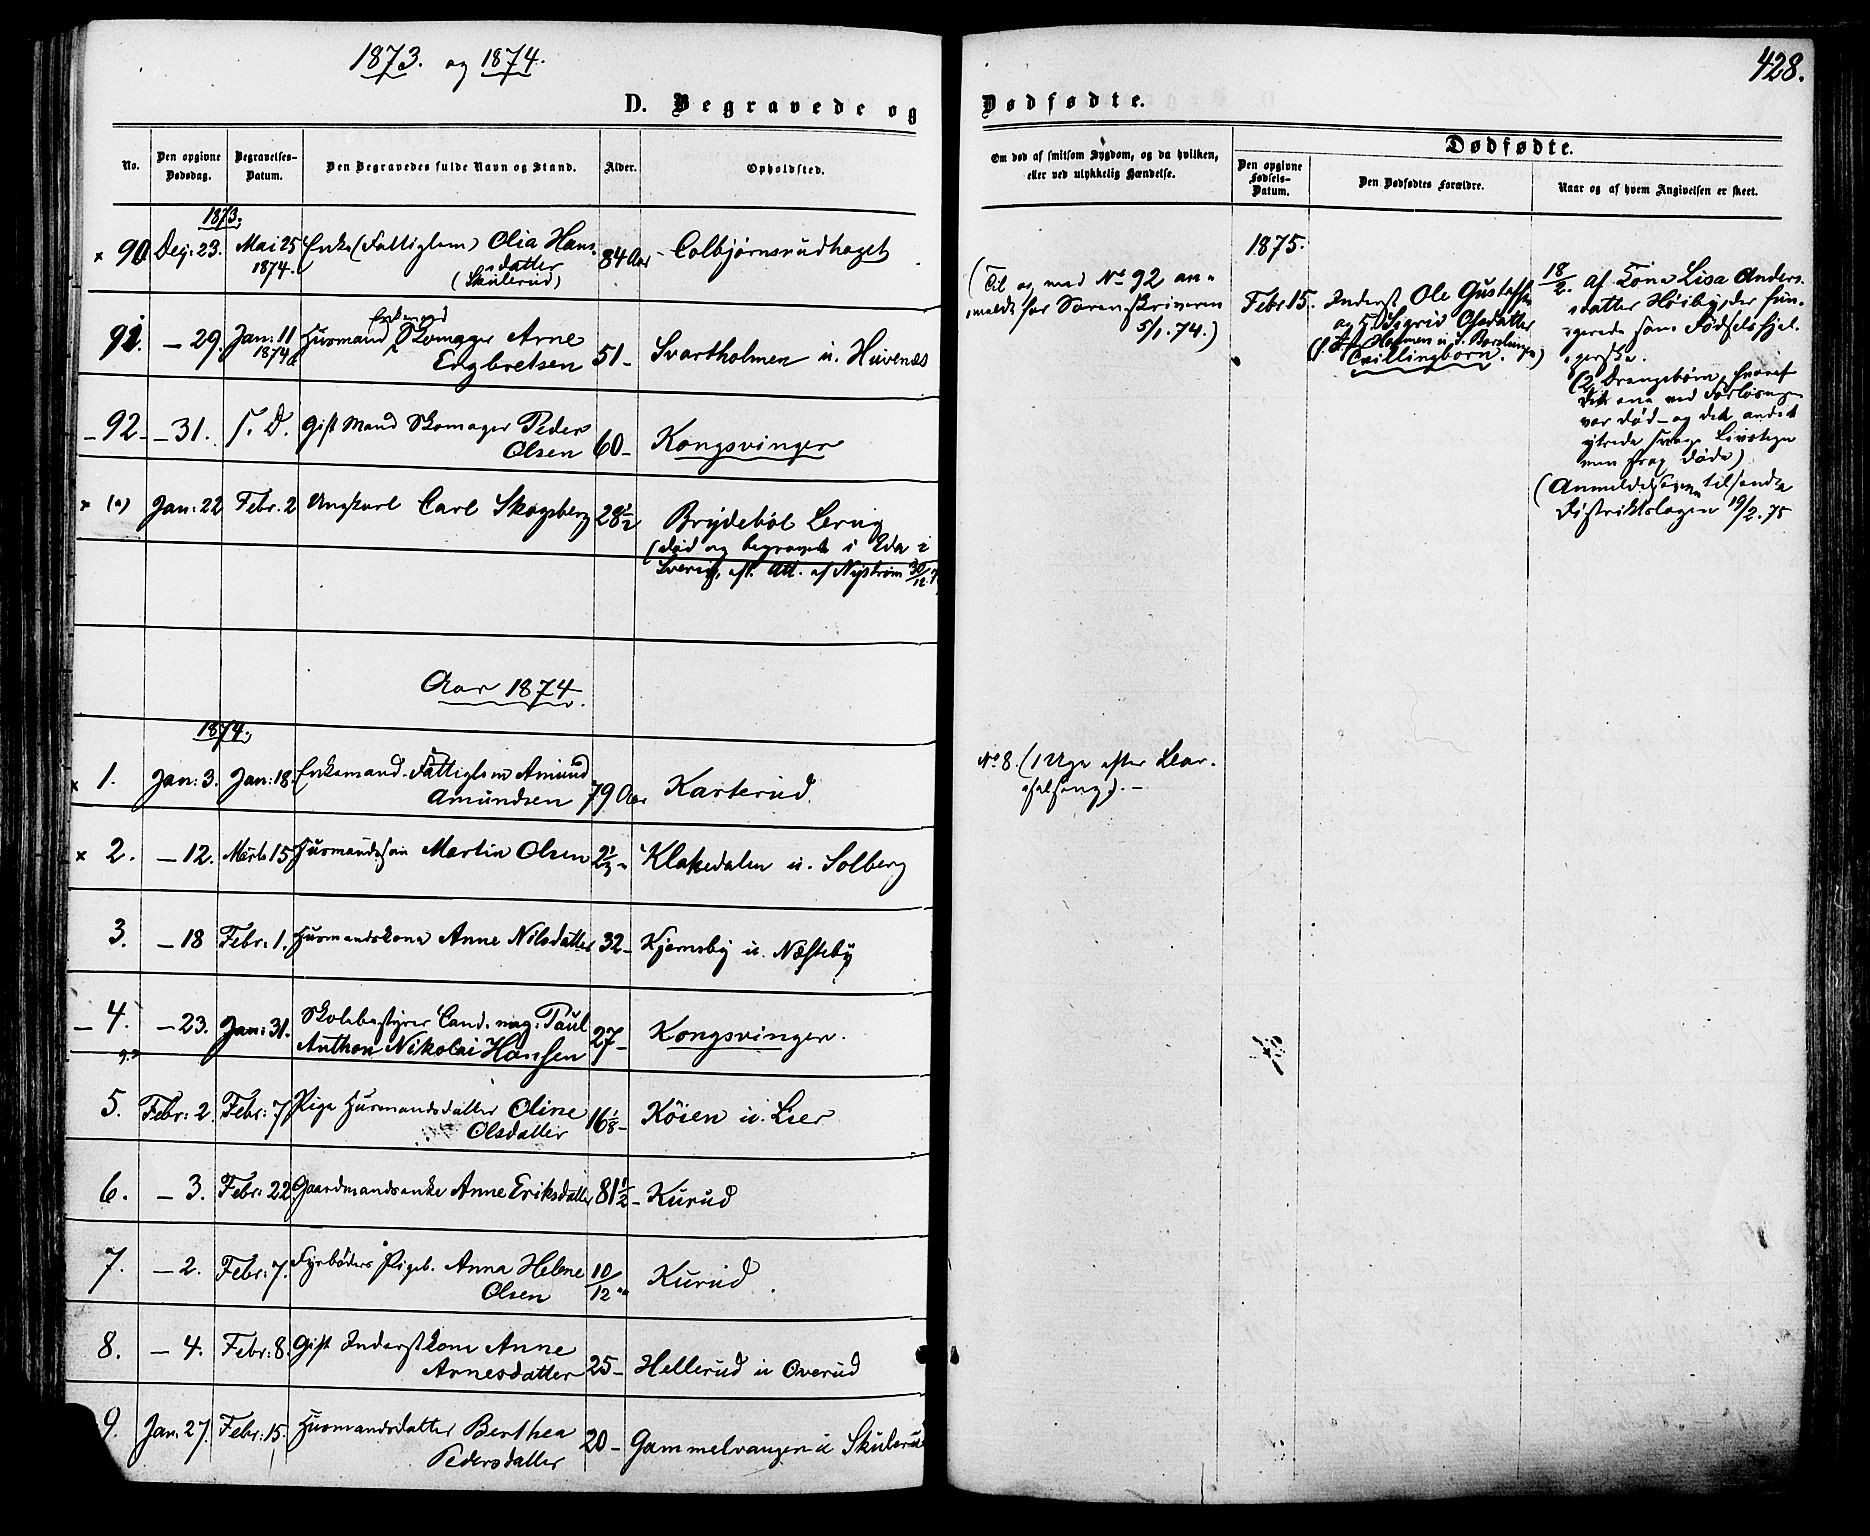 1873. og 1874.
428.
D. Begravede og
Dødfødte.
No.
Den opgivne Dødsdag.
Begravelses-Datum.
Den Begravedes fulde Navn og Stand.
Alder.
Opholdsted.
Om død af smitsom Sygdom, og da hvilken,
eller ved ulykkelig Hændelse.
Dødfødte.
Den opgivne Fødsels-Datum.
Den Dødfødtes Forældre.
Naar og af hvem Angivelsen er skeet.
1873.
× 90 Dez: 23. Mai 25 1874. Enke (Fattiglem) Olia Hans-
datter
(Skulerud) 84 Aar Colbjørnsrudhaget
91. — 29. Jan: 11 1874 Husmand Enkemand Skomager Arne
Engbretsen 51 — Svartholmen u. Huvenæs
92 — 31. S. D. Gift Mand Skomager Peder
Olsen 60 — Kongsvinger
× (a) Jan: 22 Febr. 2 Ungkarl Carl Skogsberg 28 1/2 Brydebøl Lerug
(død og begravet i Eda i
Sverig, eft. Att. af Nyström 30/12
Aar 1874.
1874.
× 1. Jan: 3. Jan: 18. Enkemand. Fattiglem Amund
Amundsen 79 Aar Karterud.
× 2. — 12. Marts 15 Husmandssøn Martin Olsen 2 1/3 " Klakedalen u. Solberg
3. — 18 Febr: 1. Husmandskone Anne Nilsdatter 32 — Kjernsby u. Næsteby
— 4. — 23. Jan: 31. Skolebestyrer Cand. mag. Paul
Anthon Nikolai Hansen 27 — Kongsvinger.
5. Febr: 2. Febr: 7 Pige Husmandsdatter Oline
Olsdatter 16 1/8 — Köien u. Lier
6. — 3. Febr: 22 Gaardmandsenke Anne Eriksdatter 81 1/2 — Kurud
7. — 2. Febr: 7. Fyrbøders Pigeb. Anna Helene
Olsen 10/12 " Kurud.
8. — 4. Febr: 8. Gift Inderstkone Anne
Arnesdatter 25 — Hellerud u Overud
9. Jan: 27. Febr: 15. Husmandsdatter Berthea
Pedersdatter 20 — Gammelvangen u Skulerud
(Til og med No 92 an-
meldt for Sorenskriveren
5/1. 74.)
No 8. (1 Uge efter Bar-
selseng). —
1875.
Febr 15. Inderst Ole Gustafsen
og H. Sigrid Olsdatter
Holmen u.
Tvillingbørn.
18/2. af Lisa Anders-
datter Høiby, der fun-
gerede som Fødselshjel-
perske.
(2 Drengebørn, hvoraf
det ene ved Forløsningen
var død — og det andet
ytrede svage Livstegn
men strax døde)
(Anmeldelsen tilsendt
Distriktslægen 19/2. 75